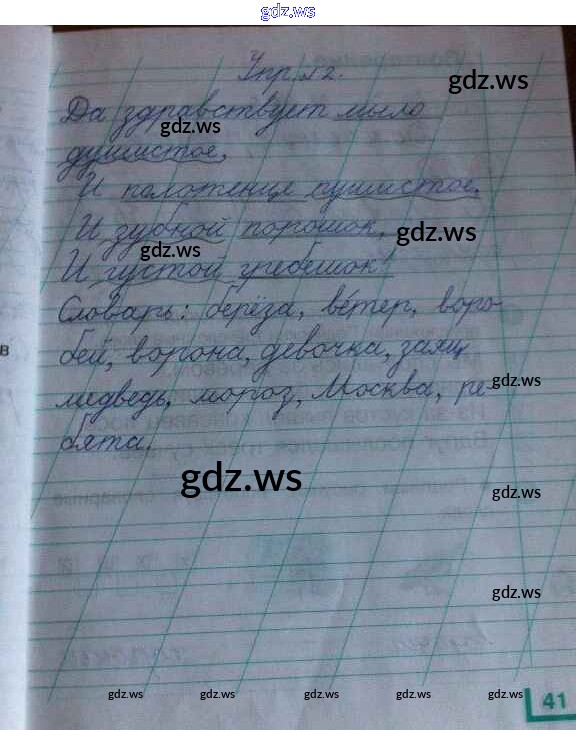 gdz.ws
Упр. 12.
gdz.ws
Да здравствует мыло
gdz.ws
душистое,
И полотенце пушистое,
И зубной порошок,
gdz.ws
gdz.ws
И густой гребешок!
Словарь: берёза, ве́тер, воро-
бей, ворона, девочка, заяц
в
gdz.ws
медведь, мороз, Москва, ре-
бята.
gdz.ws
gdz.ws
gdz.ws
gdz.ws gdz.ws gdz.ws gdz.ws gdz.ws
41